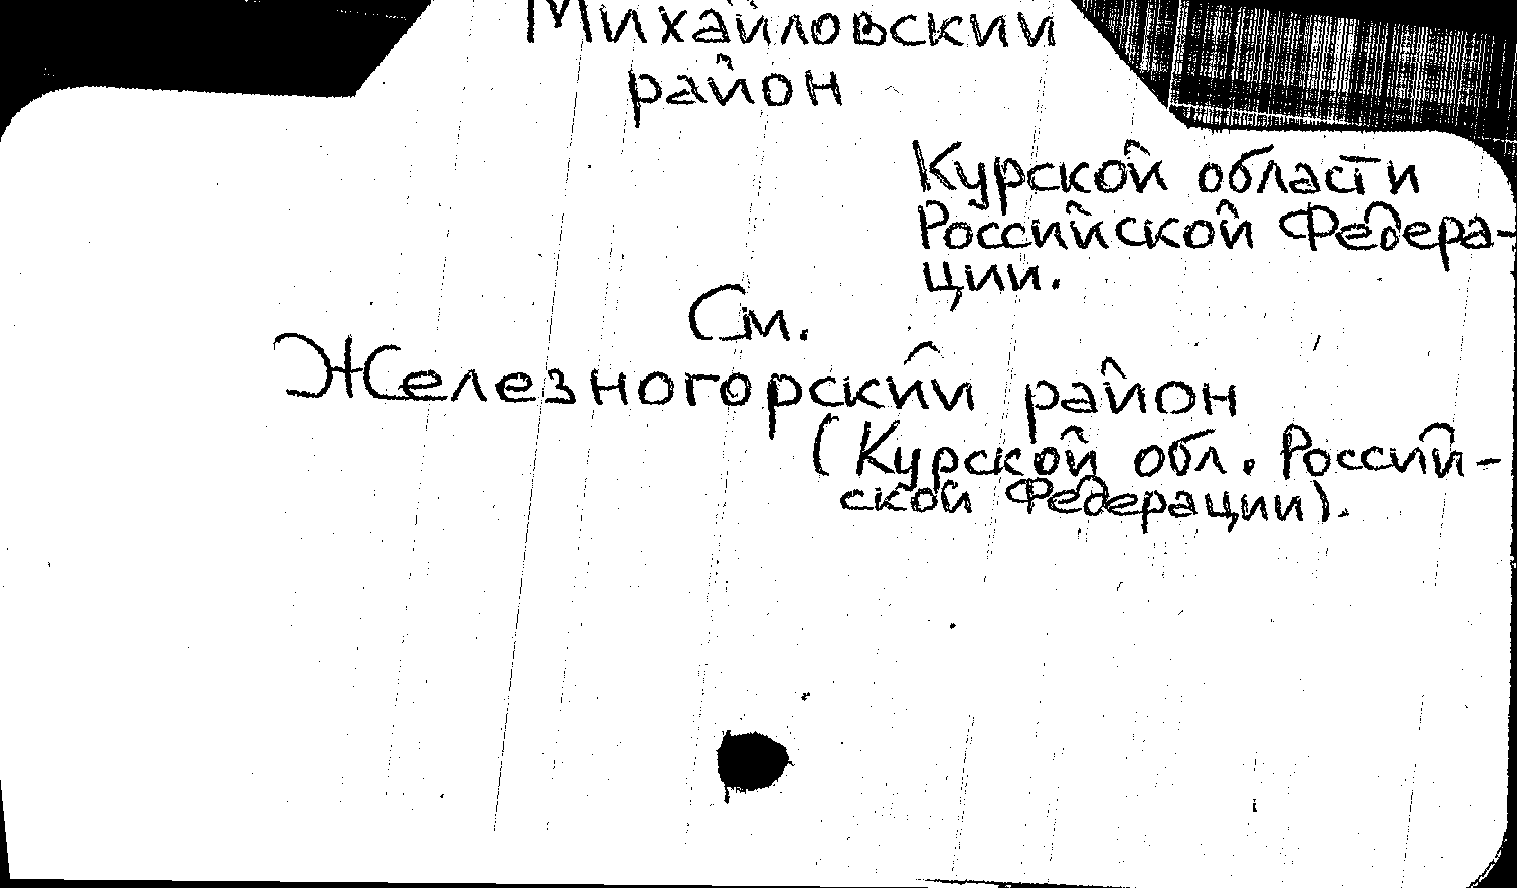 Михайловский
район
Курской области
Российской Федера-
ции.
См.
Железногорский район
(Курской обл. Россий-
ской Федерации).